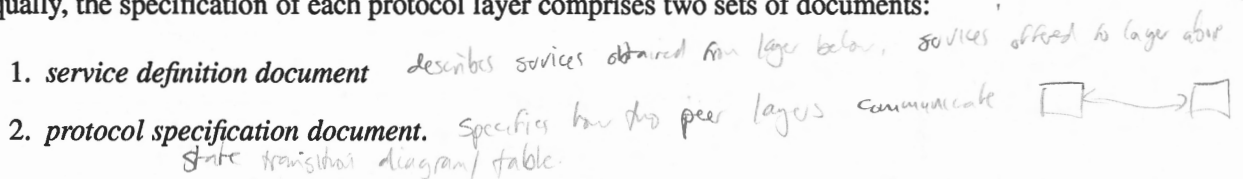 qually, the specification of each protocol layer comprises two sets of documents:
1. service definition document describes services obtained from layer below, services offered to layer above
2. protocol specification document. Specifies how two peer layers communicate
state transition diagram / table.